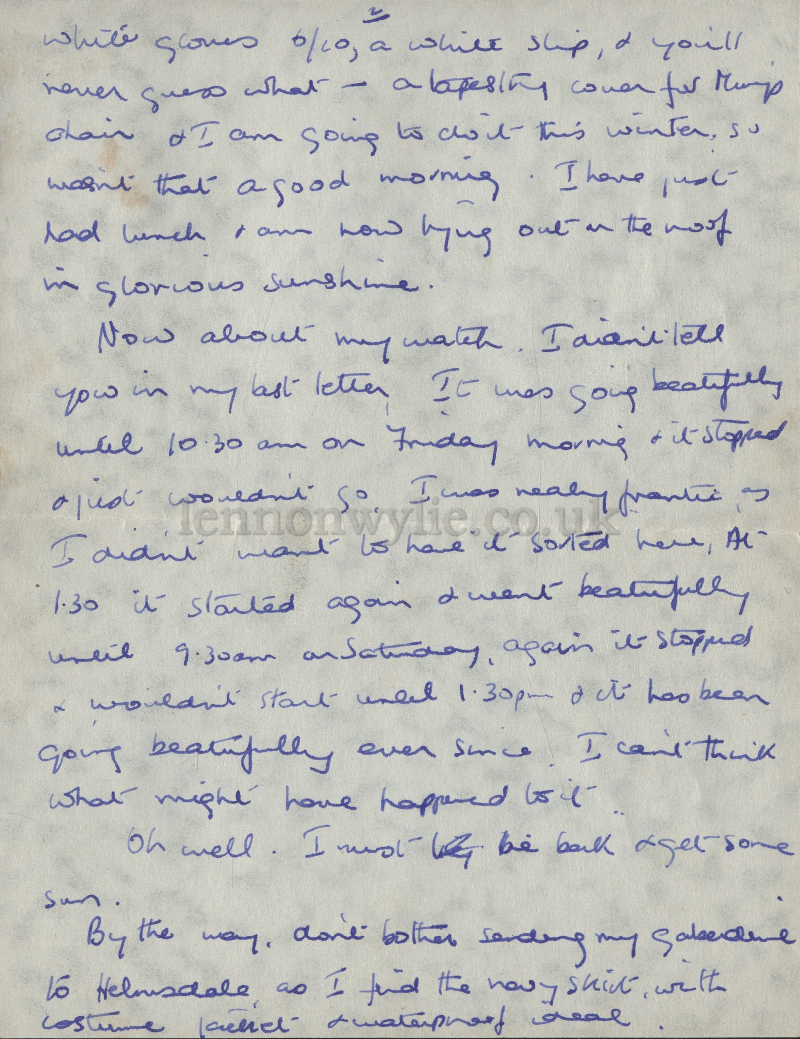 2
white gloves 6/10, a white slip, & you'll
never guess what – a tapestry cover for Mums
chair & I am going to do it this winter, so
wasn't that a good morning. I have just
had lunch & am now lying out on the roof
in glorious sunshine.
Now about my watch. I didn't tell
you in my last letter, It was going beatifully
until 10.30 am on Friday mornig & it stopped
& just wouldn't go. I was nearly frantic, as
lennonwylie.co.uk
I didn't want to have it sorted here, At
1.30 it started again & went beatifully
until 9.30am on Saturday, again it stopped
& wouldn't start until 1.30pm & it has been
going beatifully ever since. I can't think
what might have happened to it.
Oh well. I must lie back & get some
sun.
By the way, don't bother sending my gaberdine
to Helmsdale, as I find the navy skirt, with
costume jacket & waterproof ideal.